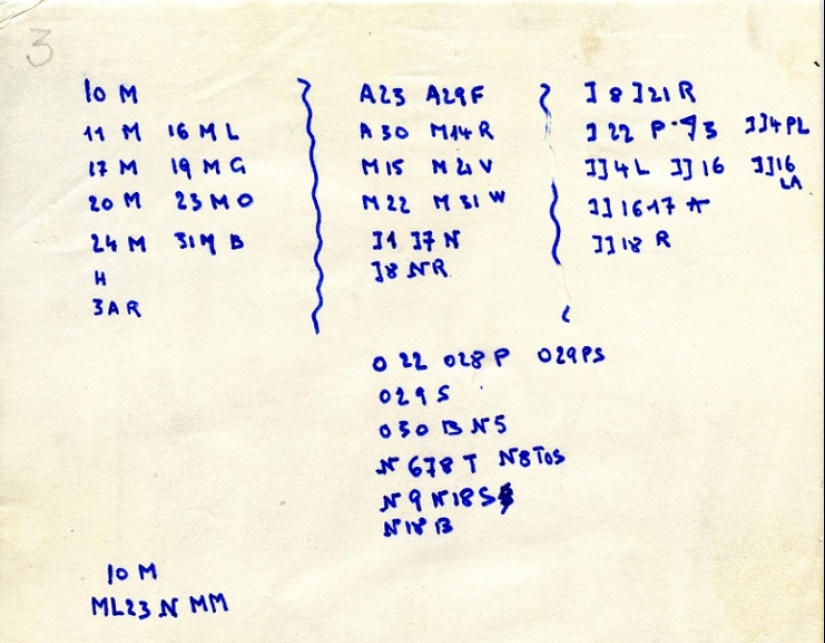 3
10 M
11 M 16 M L
17 M 19 M G
20 M 23 M O
24 M 31 M B
H
3 A R
A23 A29F
A 30 M14 R
M 15 M 21 V
M 22 M 31 W
J1 J7 N
J8 NR
J 8 J21 R
J 22 P 73 JJ4PL
JJ4 L JJ 16 JJ16
LA
JJ 16 17 A
JJ 18 R
O 22 O28 P O29PS
O29 S
O30 B N5
N 678 T N8TOS
N 9 N18 S
N 18 B
10 M
ML23 N MM